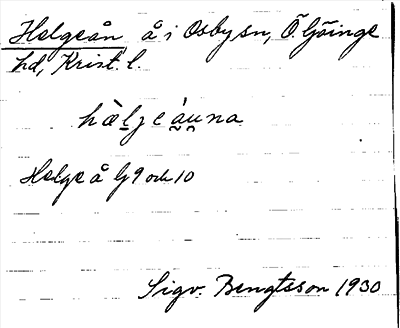 Helgeån å i Osby sn, Ö. Göinge
hd, Krist. l.
hàlje áu̯na
Helge å G 9 och 10
Sigv. Bengtsson 1930